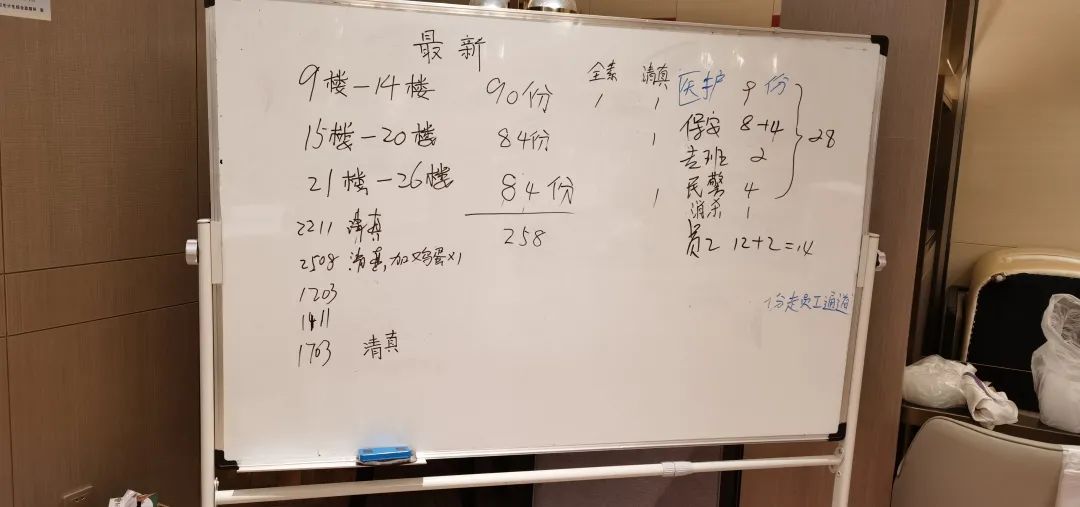 最新
全素 清真
9楼-14楼 90份 1 1 医护 9份
15楼-20楼 84份 1 保安 8+4
28
志班 2
21楼-26楼 84份 1 民警 4
消杀 1
258
员工 12+2=14
2211 清真
2508 清真,加鸡蛋×1
1203
1411
1703 清真
份走员工通道